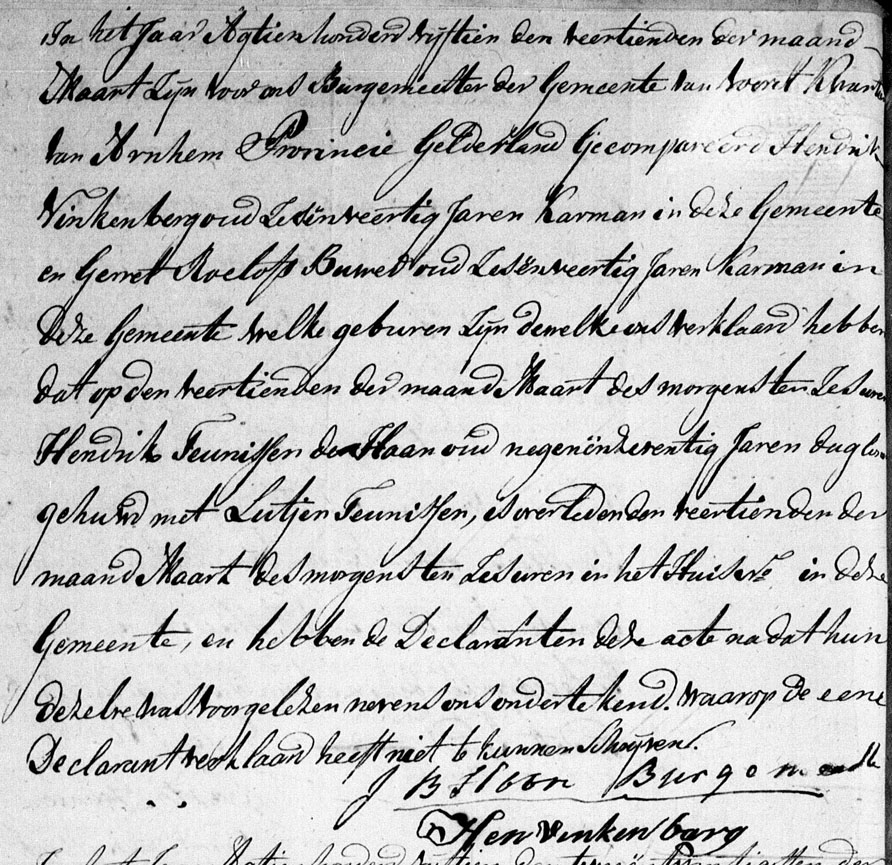 In het Jaar Agtienhonderd vijftien den veertienden der maand
Maart Zijn voor ons Burgemeester der Gemeente van Voorst Kwartier
van Arnhem Provincie Gelderland Gecompareerd Hendrik
Vinkenberg oud Zesënveertig Jaren Karman in deze Gemeente
en Gerret Roelofs Buwes oud Zesënveertig Jaren Karman in
deze Gemeente welke geburen Zijn dewelke ons verklaard hebben
dat op den veertienden der maand Maart des morgens ten Zes uren
Hendrik Teunissen de Haan oud negenënzeventig Jaren dagloner
gehuwd met Lutjen Teunissen, is overleden den veertienden der
maand Maart des morgens ten Zes uren in het Huis in deze
Gemeente, en hebben de Declaranten deze acte na dat hun
dezelve was voorgelezen nevens ons ondertekend. waarop de eene
Declarant verklaard heeft niet te kunnen Schrijven.
J B Burgem
Hen Vinkenbarg